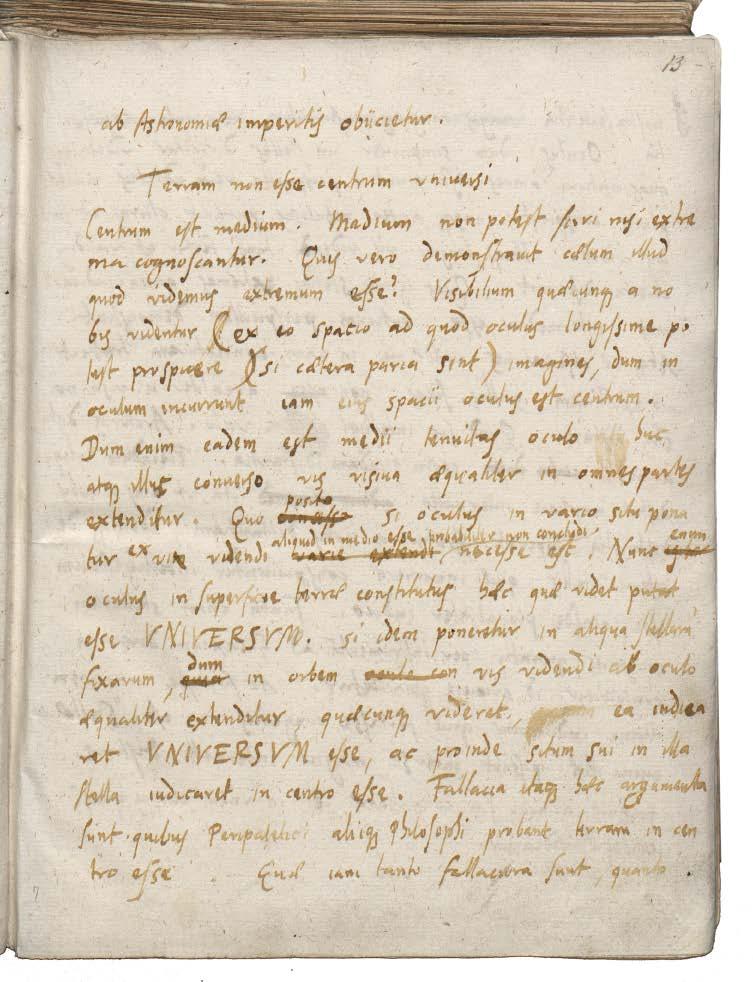 13
ab Astronomiæ imperitis obijcietur.
Terram non esse centrum vniuersi
Centrum est medium. Medium non potest sciri nisi extre
ma cognoscantur. Quis vero demonstrauit cælum illud
quod videmus extremum esse? Visibilium quæcunq a no
bis videntur (ex eo spacio ad quod oculus longissime po
test prospicere) (si cætera paria sint) imagines, dum in
oculum incurrunt iam eius spacij oculus est centrum.
Dum enim eadem est medii tenuitas oculo huc
atq illuc conuerso vis visiua æqualiter in omnes partes
posito
extenditur. Quo concesso si oculus in vario situ pona
aliquid in medio esse probabiliter non concludi enim
tur ex vi videndi varie extendi necesse est. Nunc
oculus in superficie terræ constitutus hæc quæ videt putat
esse VNIVERSVM. Si idem poneretur in aliqua stellarū
dum
fixarum, quia in orbem vis videndi ab oculo
æqualiter extenditur, quæcunq videret, ea iudica
ret VNIVERSVM esse, ac proinde situm sui in illa
stella iudicaret in centro esse. Fallacia itaq hæc argumenta
sunt quibus Peripatetici aliiq Philosophi probant terram in cen
tro esse Quæ iam tanto fallaciora sunt, quanto